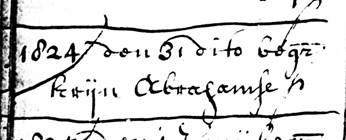 1824 den 31 dito begr
krijn Abrahamse